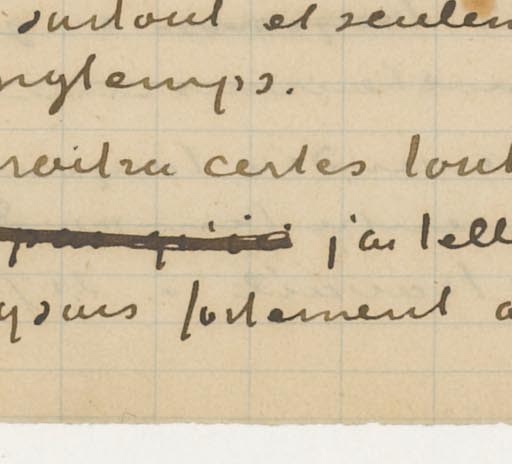 surtout et seulem
ngtemps.
roitra certes tout
j'ai tell
ysans fortement a